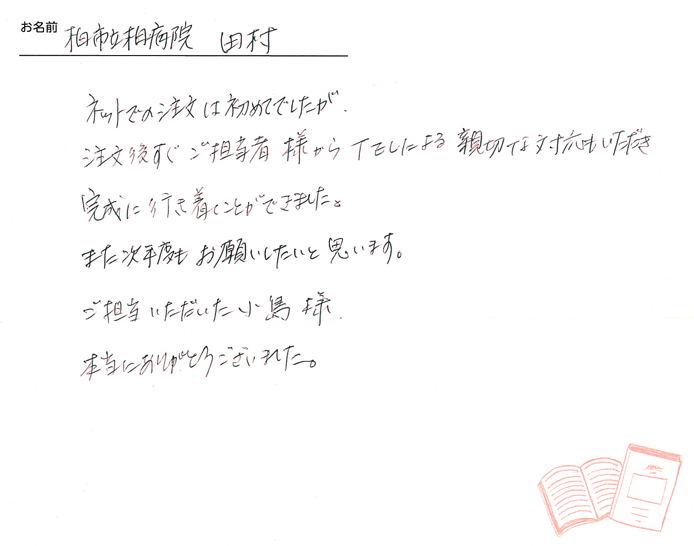 お名前 柏市立柏病院 田村
ネットでの注文は初めてでしたが、
注文後すぐ ご担当者様から TELによる 親切な対応もいただき
完成に行き着くことができました。
また次年度も お願いしたいと思います。
ご担当いただいた小島様、
本当にありがとうございました。